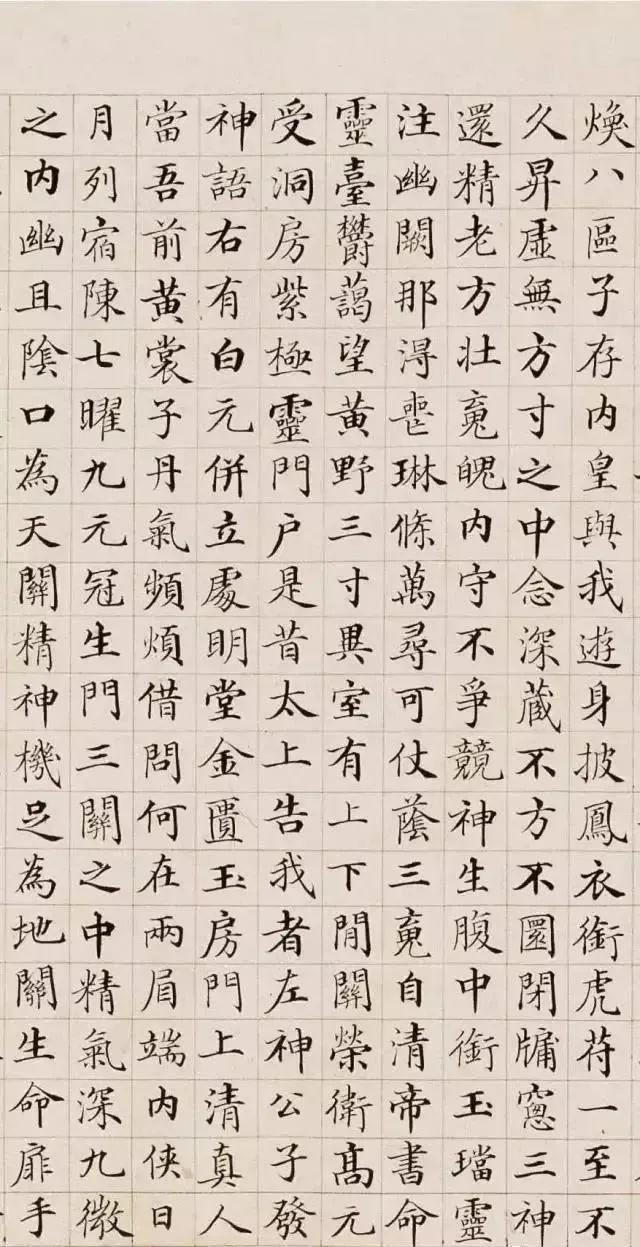 煥八區子存內皇與我遊身披鳳衣銜虎苻一至不
久昇虛無方寸之中念深藏不方不圓閉牗窓三神
還精老方壯䰟魄內守不爭競神生腹中銜玉璫靈
注幽闕那淂喪琳條萬尋可仗蔭三䰟自清帝書命
靈臺欝藹望黃野三寸異室有上下閒關榮衛髙元
受洞房紫極靈門户是昔太上告我者左神公子發
神語右有白元併立處明堂金匱玉房門上清真人
當吾前黃裳子丹氣頻煩借問何在兩眉端內俠日
月列宿陳七曜九元冠生門三關之中精氣深九微
之內幽且陰口為天關精神機足為地關生命扉手